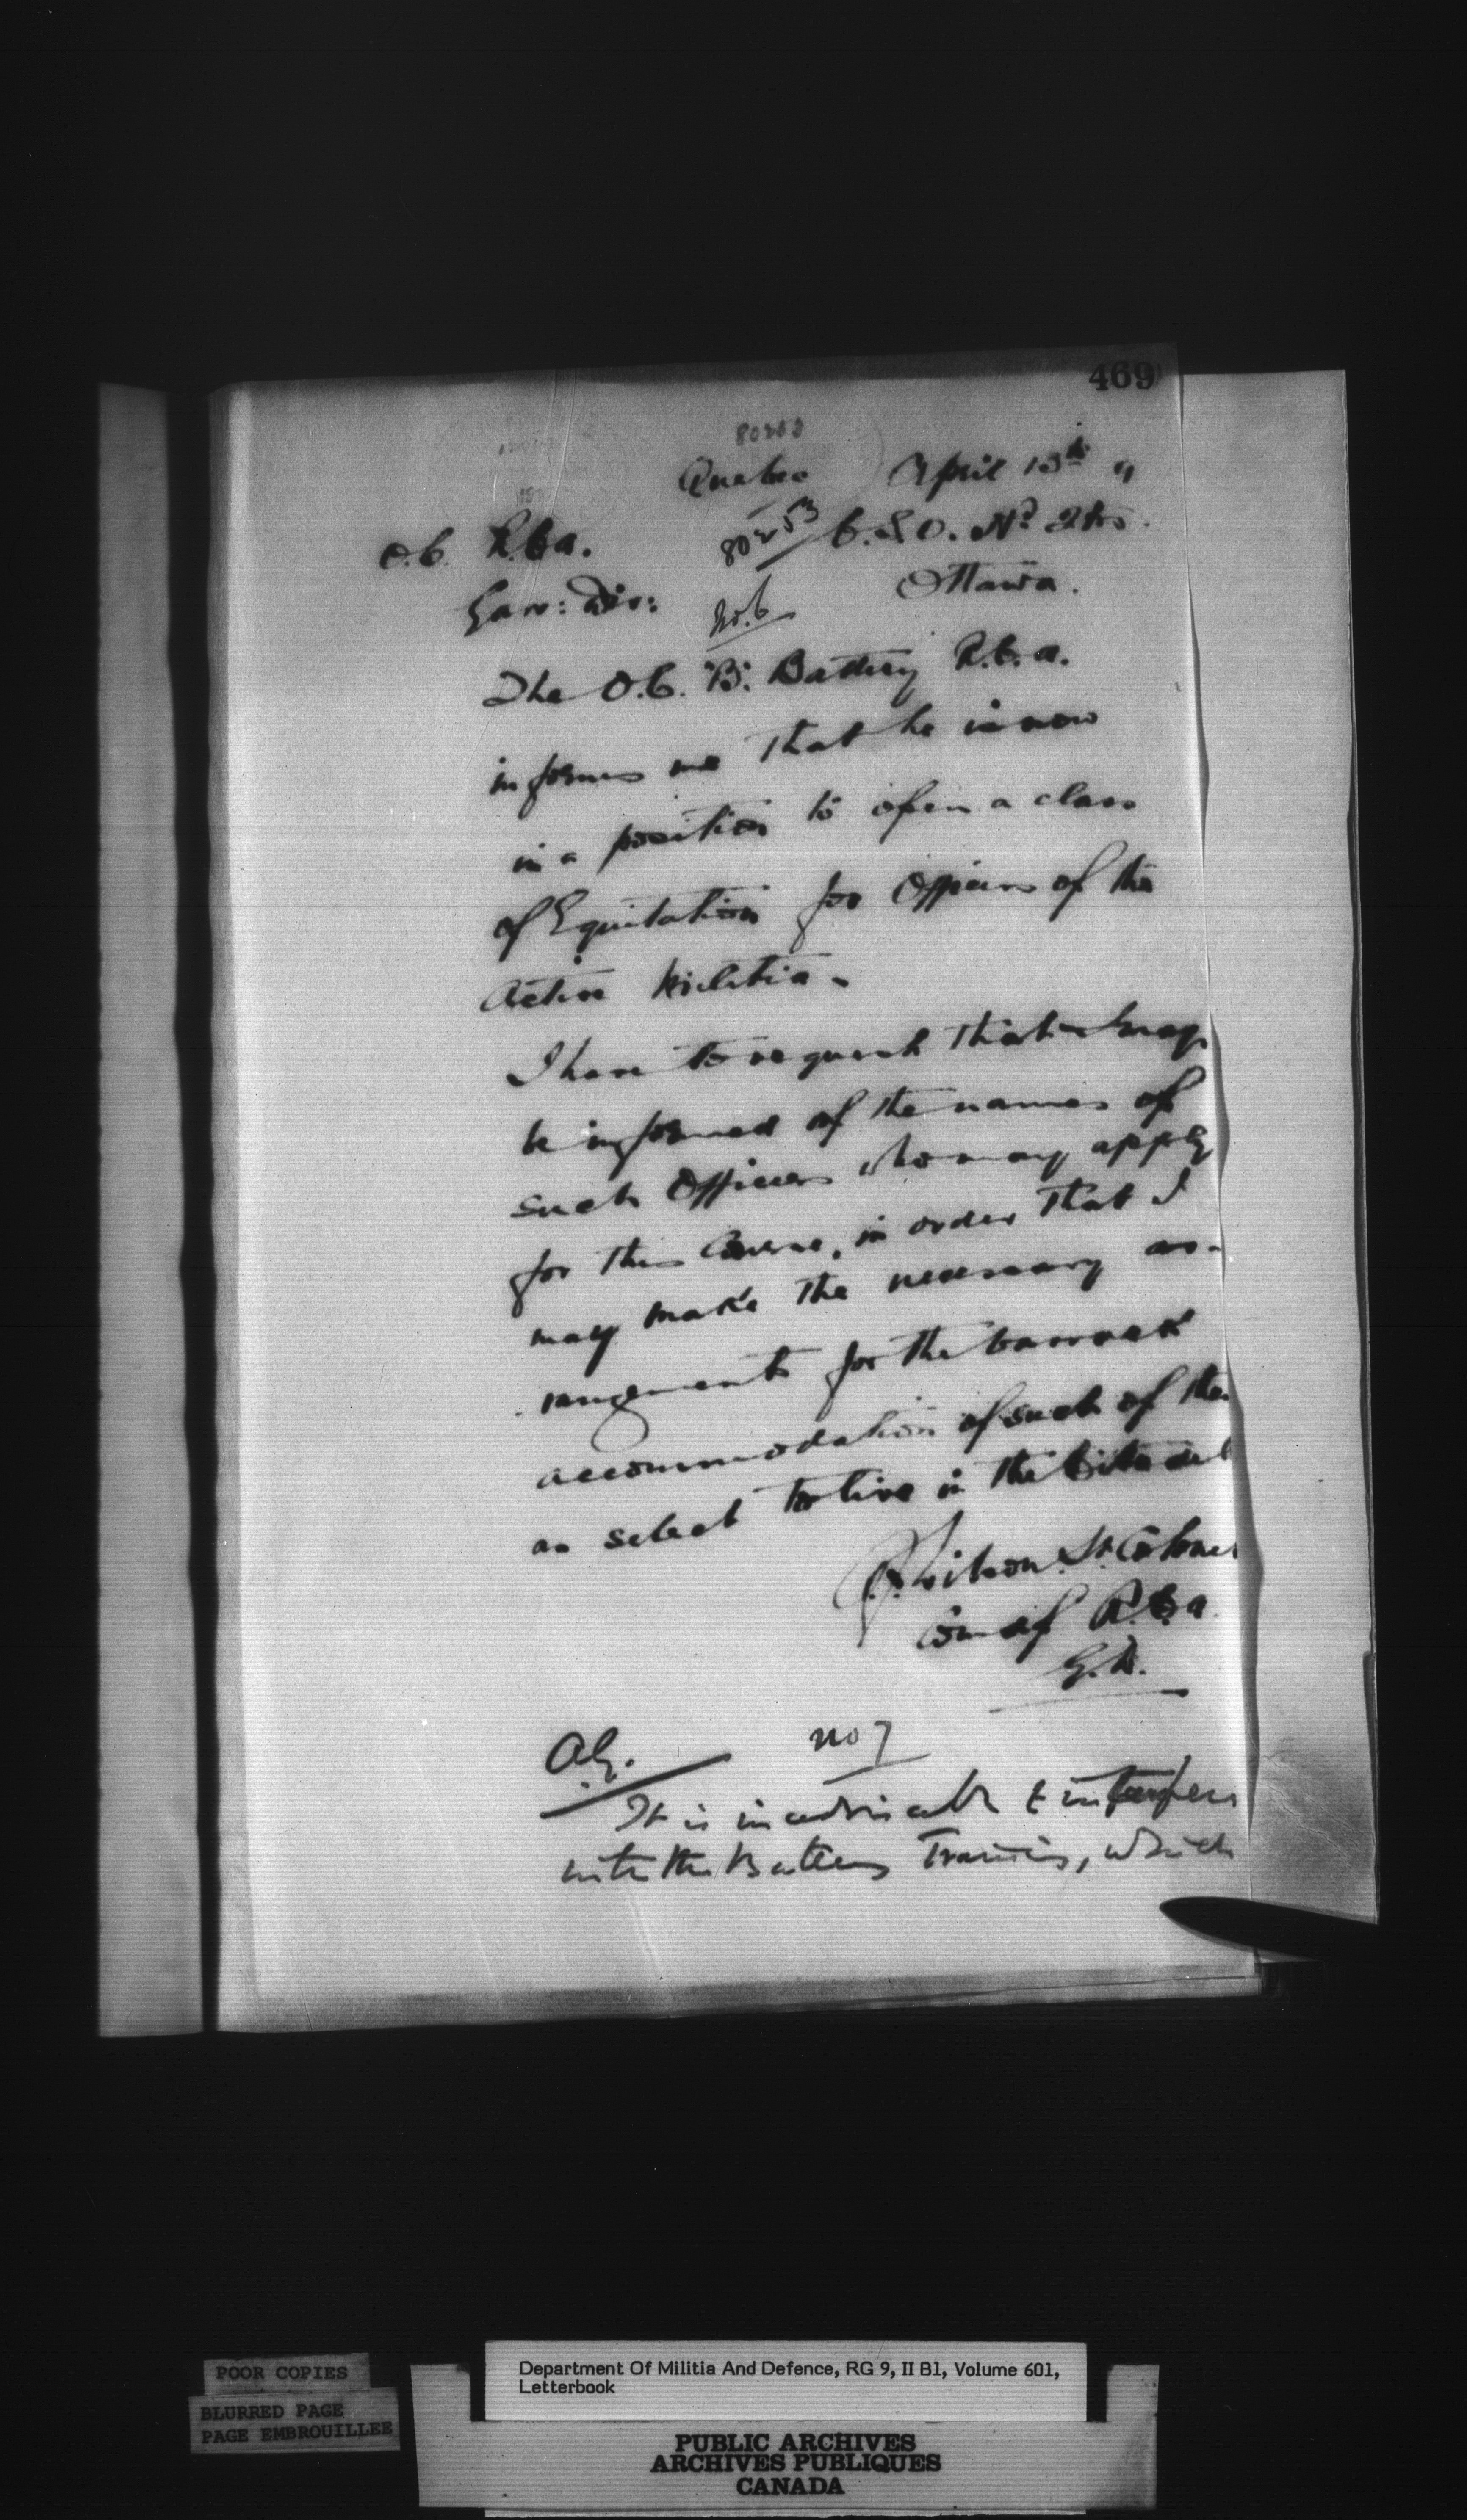 469
80253
Quebec April 13th 9
O.C. R.C.A. 80253 C.S.O. No 2 Hrs.
Gar: Div: No. 6 Ottawa.
The O.C. "B". Battery R.C.A.
informs me that he is now
in a position to open a class
of Equitation for Officers of the
Active Militia.
I have to request that I may
be informed of the names of
such Officers who may apply
for this Course, in order that I
may make the necessary ar-
rangements for the barrack
accommodation of such of them
as select to live in the Citadel
Wilson. Lt. Colonel
Com of R.C.A.
G.D.
A.G. No 7
It is inadvisable to interfere
with the Battery Training, which
POOR COPIES
BLURRED PAGE
PAGE EMBROUILLEE
Department Of Militia And Defence, RG 9, II B1, Volume 601,
Letterbook
PUBLIC ARCHIVES
ARCHIVES PUBLIQUES
CANADA